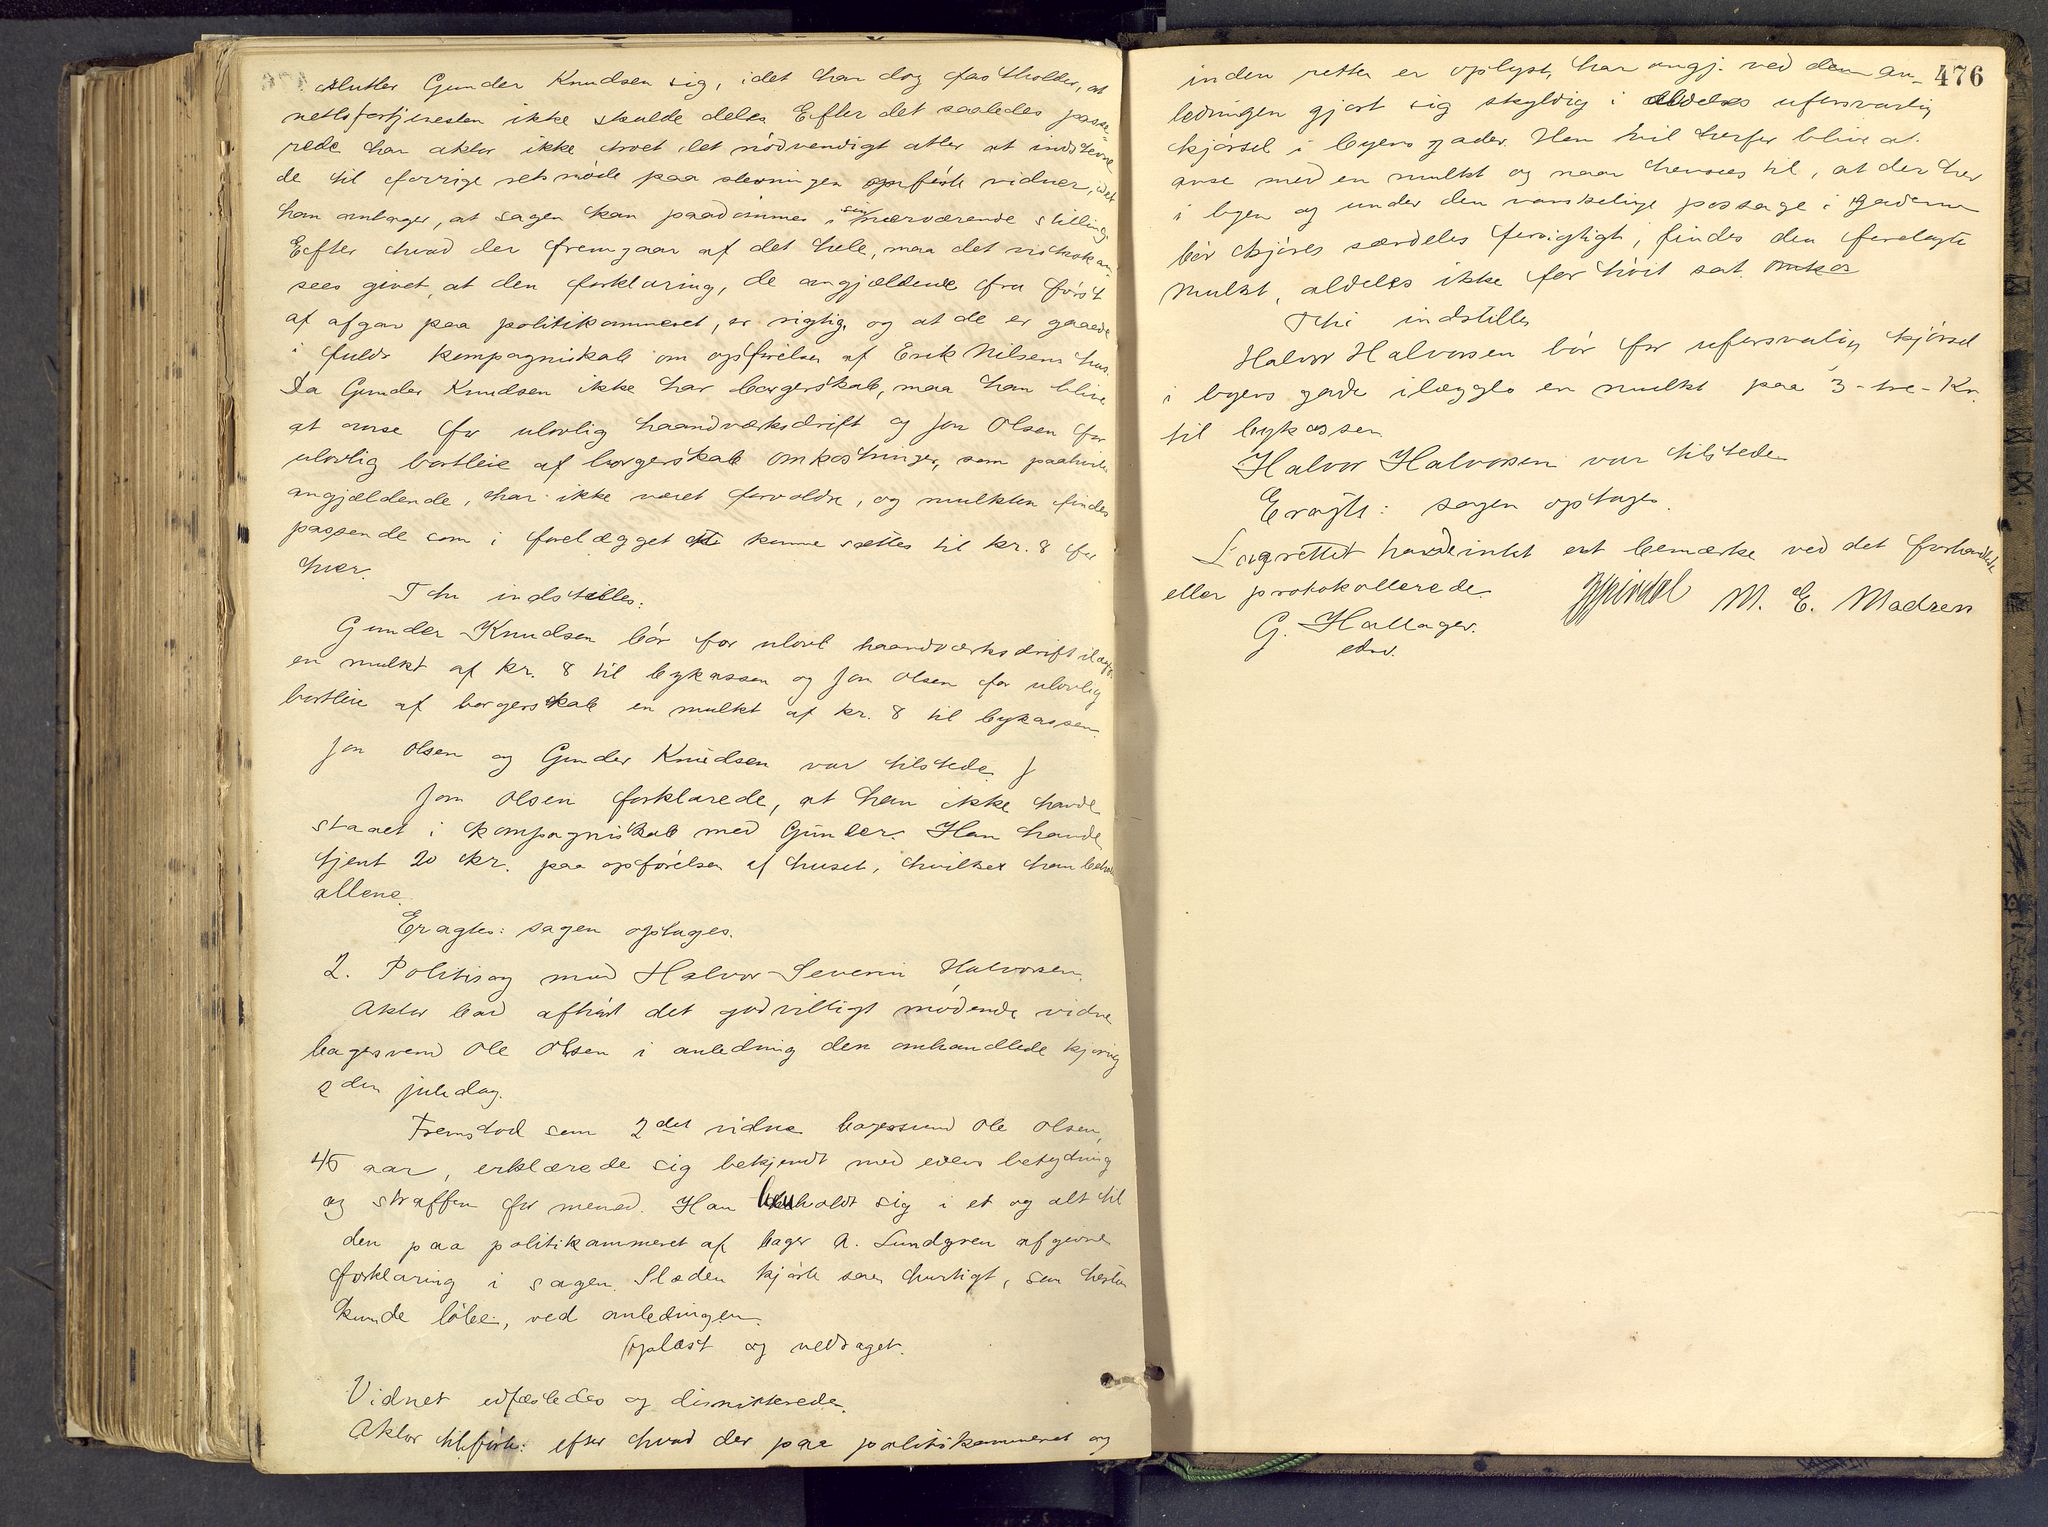 slutter Gunder Knudsen sig, idet han dog fastholder, at
nettofortjenesten ikke skulde deles. Efter det saaledes passe-
rede har aktor ikke troet det nödvendigt atter at indstevne
de til forrige retsmöde paa stevningen opförte vidner, idet
han antager, at sagen kan paadömmes i sin nærværende stilling.
Efter hvad der fremgaar af det hele, maa det vistnok an-
sees givet, at den forklaring, de angjældende fra först
af afgav paa politikammeret, er rigtig, og at de er gaaede
i fuldt kompagniskab om opförelsen af Erik Nilsens hus.
Da Gunder Knudsen ikke har borgerskab, maa han blive
at anse for ulovlig haandværksdrift og Jon Olsen for
ulovlig bortleie af borgerskab. Omkostninger, som paahviler
angjældende, har ikke været forvoldte, og mulkten findes
passende som i forelægget at kunne sættes til kr. 8 for
hver.
Thi indstilles:
Gunder Knudsen bör for ulovl. haandværksdrift ilægges
en mulkt af kr. 8 til bykassen og Jon Olsen for ulovlig
bortleie af borgerskab en mulkt af kr. 8 til bykassen.
Jon Olsen og Gunder Knudsen var tilstede.
Jon Olsen forklarede, at han ikke havde
staaet i kompagniskab med Gunder. Han havde
tjent 20 kr. paa opförelsen af huset, hvilket han beholdt
allene.
Eragtes: sagen optages.
2. Politisag mod Halvor Severin Halvorsen.
Aktor bad afhört det godvilligt mödende vidne
bagersvend Ole Olsen i anledning den omhandlede kjöring
2den juledag.
Fremstod som 2det vidne bagersvend Ole Olsen,
45 aar, erklærede sig bekjendt med edens betydning
og straffen for mened. Han henholdt sig i et og alt til
den paa politikammeret af bager A. Lundgren afgivne
forklaring i sagen. Slæden kjörte saa hurtigt, som hesten
kunde löbe, ved anledningen.
Oplæst og vedtaget.
Vidnet edfæstedes og dimitterede.
Aktor tilförte: efter hvad der paa politikammeret og
476
inden retten er oplyst, har angj. ved den an-
ledningen gjort sig skyldig i aldeles uforsvarlig
kjörsel i byens gader. Han vil derfor blive at
anse med en mulkt og naar hensees til, at der her
i byen og under den vanskelige passage i gaderne
bör kjöres særdeles forsigtigt, findes den forelagte
mulkt, aldeles ikke for höit sat.
Thi indstilles
Halvor Halvorsen bör for uforsvarlig kjörsel
i byens gade ilægges en mulkt paa 3 - tre - Kr.
til bykassen
Halvor Halvorsen var tilstede
Eragts: sagen optages.
Lagrettet havde intet at bemærke ved det forhandlede
eller protokollerede.
M. E. Madsen
G. Hallager.
edsv.